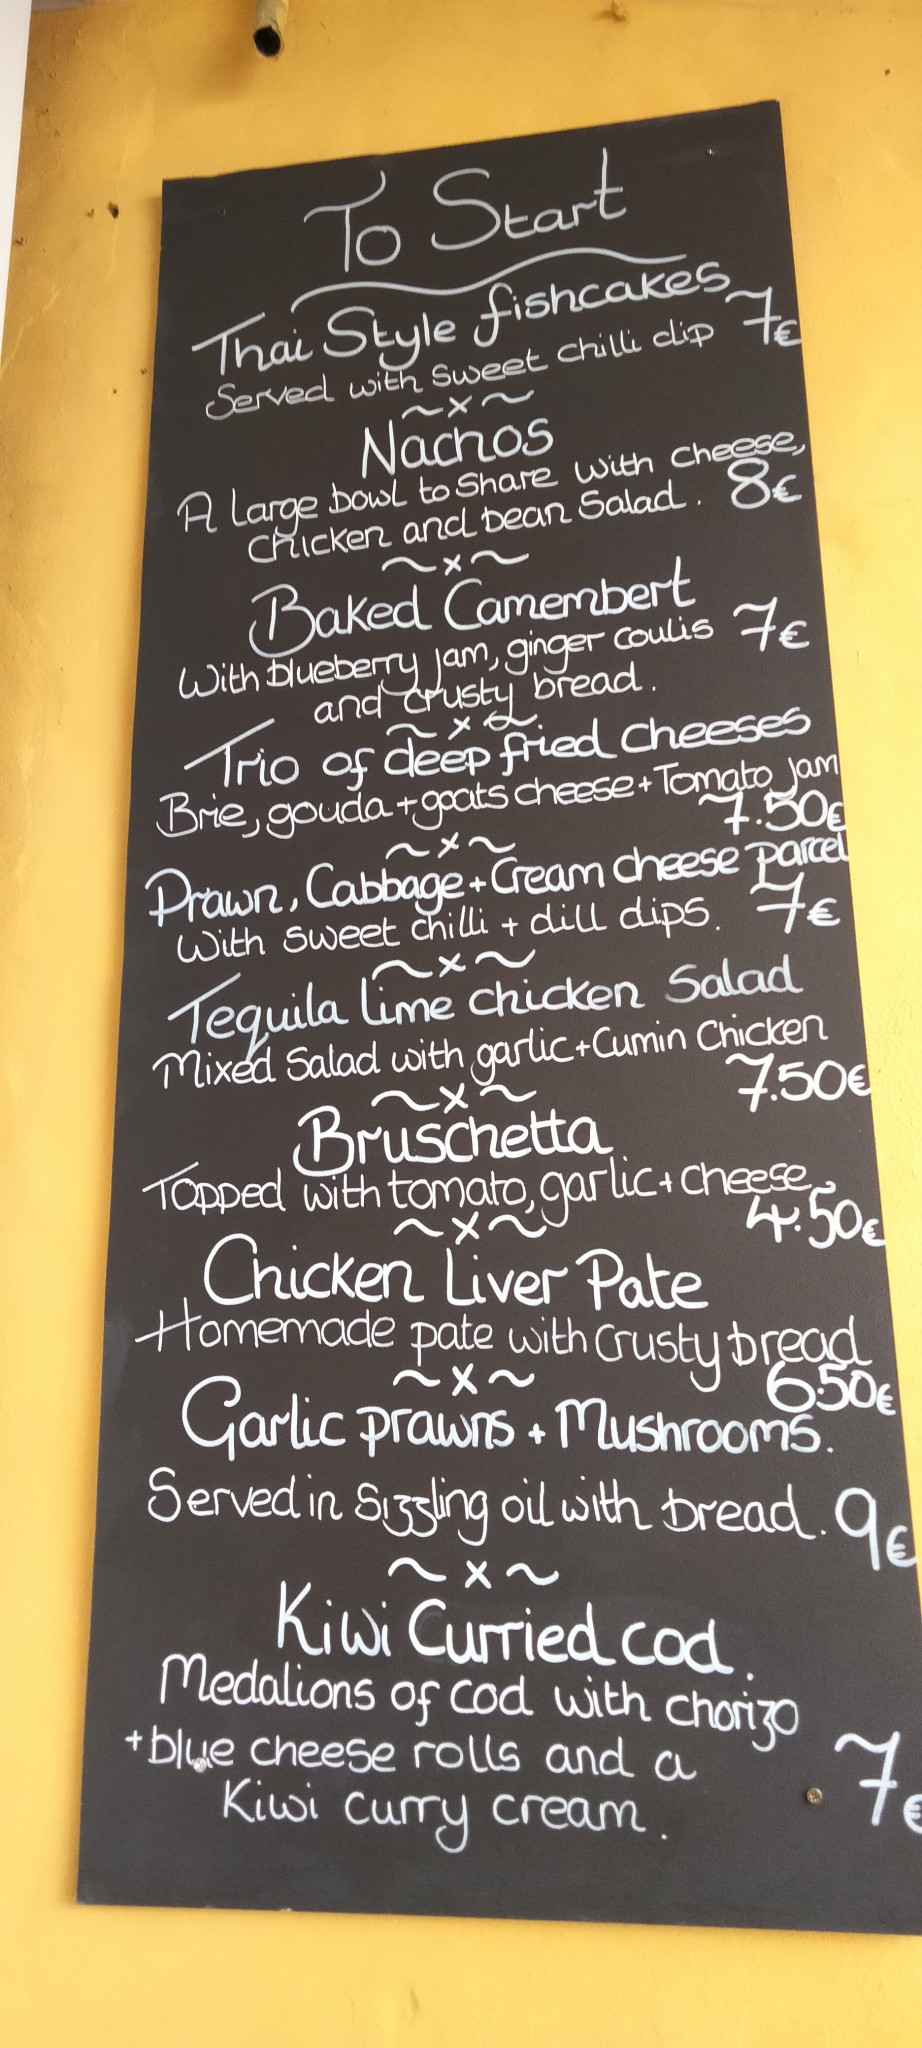 To Start
Thai Style fishcakes
Served with sweet chilli dip 7€
~x~
Nachos
A large bowl to share with cheese,
chicken and bean salad. 8€
~x~
Baked Camembert
With blueberry jam, ginger coulis 7€
and crusty bread.
~x~
Trio of deep fried cheeses
Brie, gouda + goats cheese + Tomato jam
7.50€
~x~
Prawn, Cabbage + Cream cheese parcel
With sweet chilli + dill dips. 7€
~x~
Tequila lime chicken Salad
Mixed Salad with garlic + Cumin Chicken
7.50€
~x~
Bruschetta
Topped with tomato, garlic + cheese.
4.50€
~x~
Chicken Liver Pate
Homemade pate with crusty bread
6.50€
~x~
Garlic prawns + Mushrooms.
Served in sizzling oil with bread. 9€
~x~
Kiwi Curried cod.
Medalions of cod with chorizo
+ blue cheese rolls and a 7€
Kiwi curry cream.